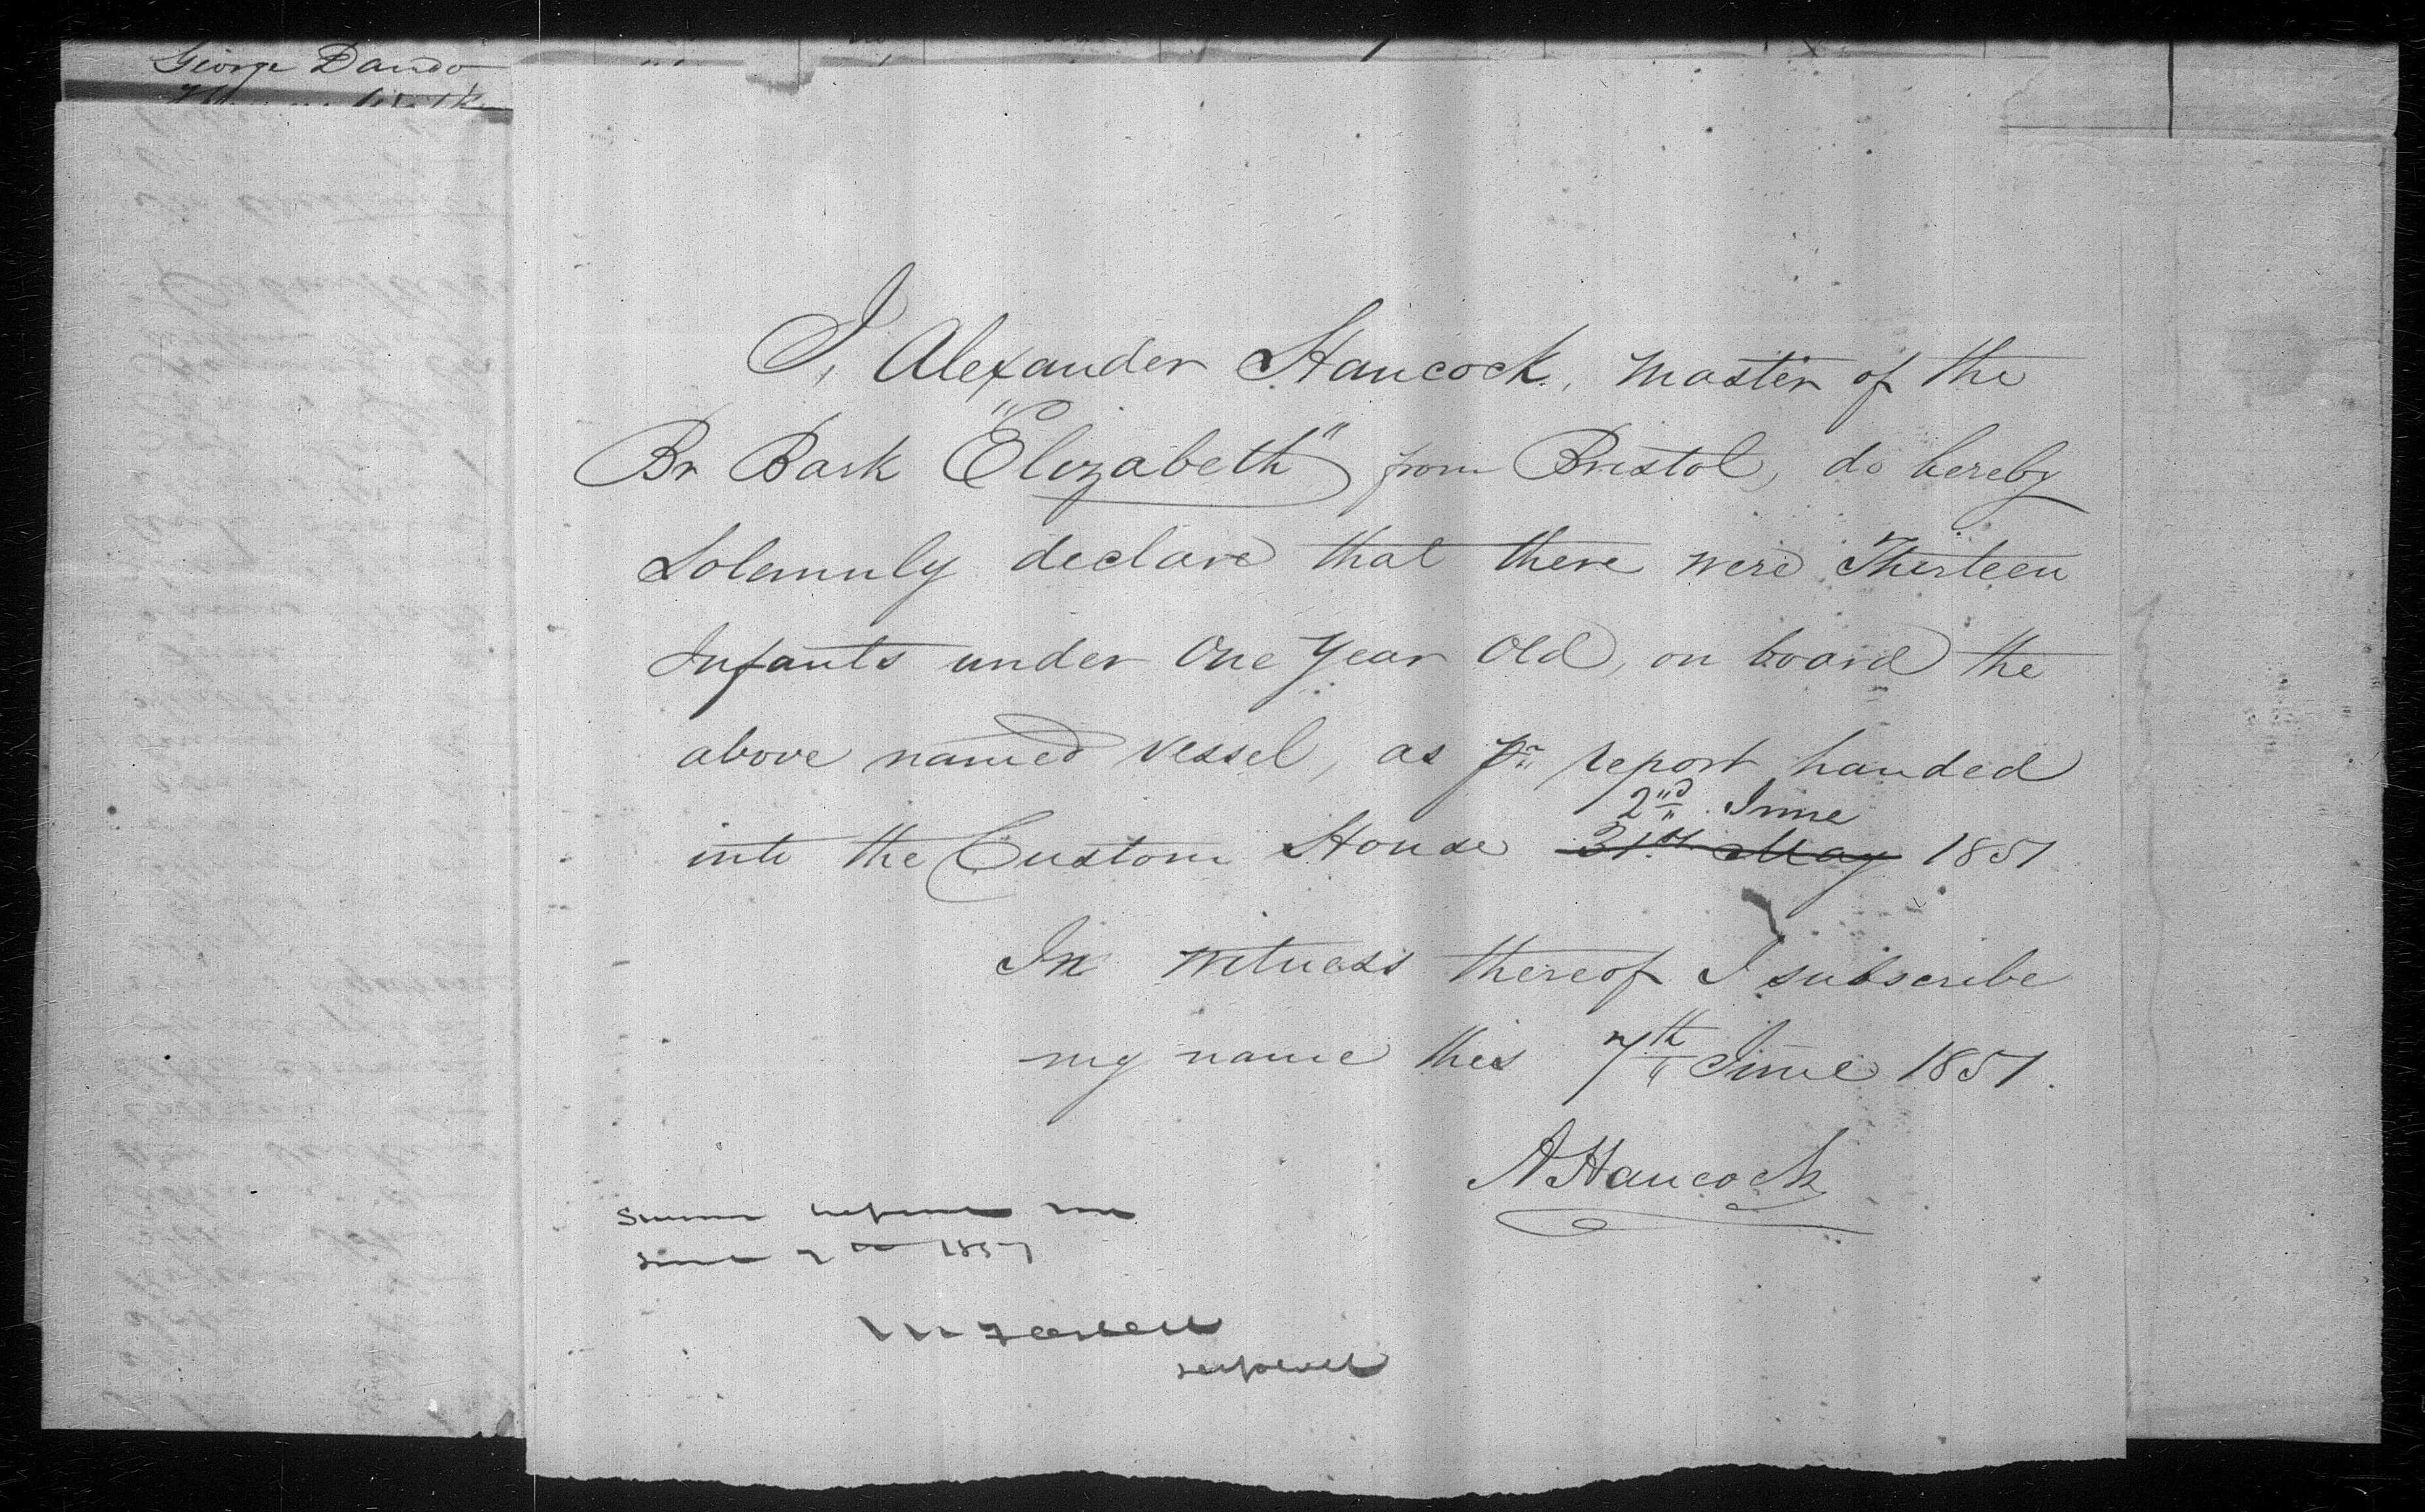 George Dando
I, Alexander Hancock, Master of the
Br Bark "Elizabeth" from Bristol, do hereby
Solemnly declare that there were Thirteen
Infants under One Year Old, on board the
above named Vessel, as pr report handed
2nd June
into the Custom House 31st May 1851
In witness thereof I subscribe
my name this 7th June 1851.
A Hancock
Sworn before me
June 7th 1851